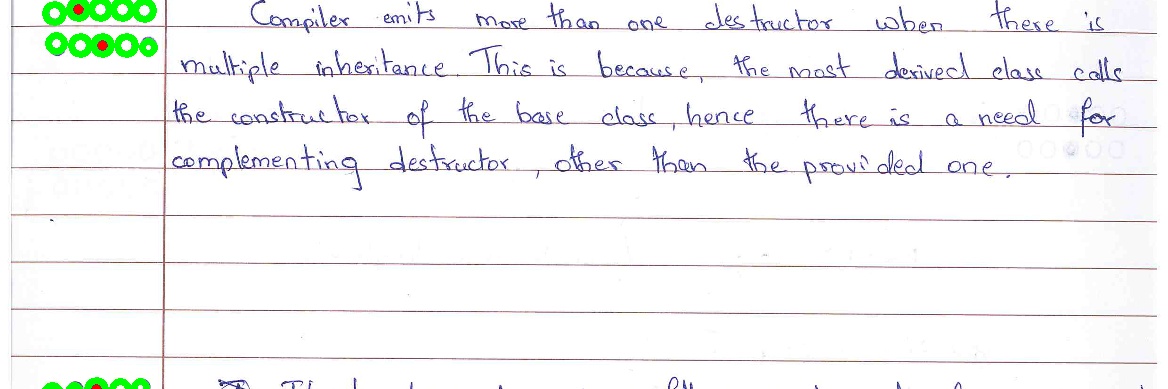 Compiler emits more than one destructor when there is
multiple inheritance. This is because, the most derived class calls
the constructor of the base class, hence there is a need for
complementing destructor, other than the provided one.